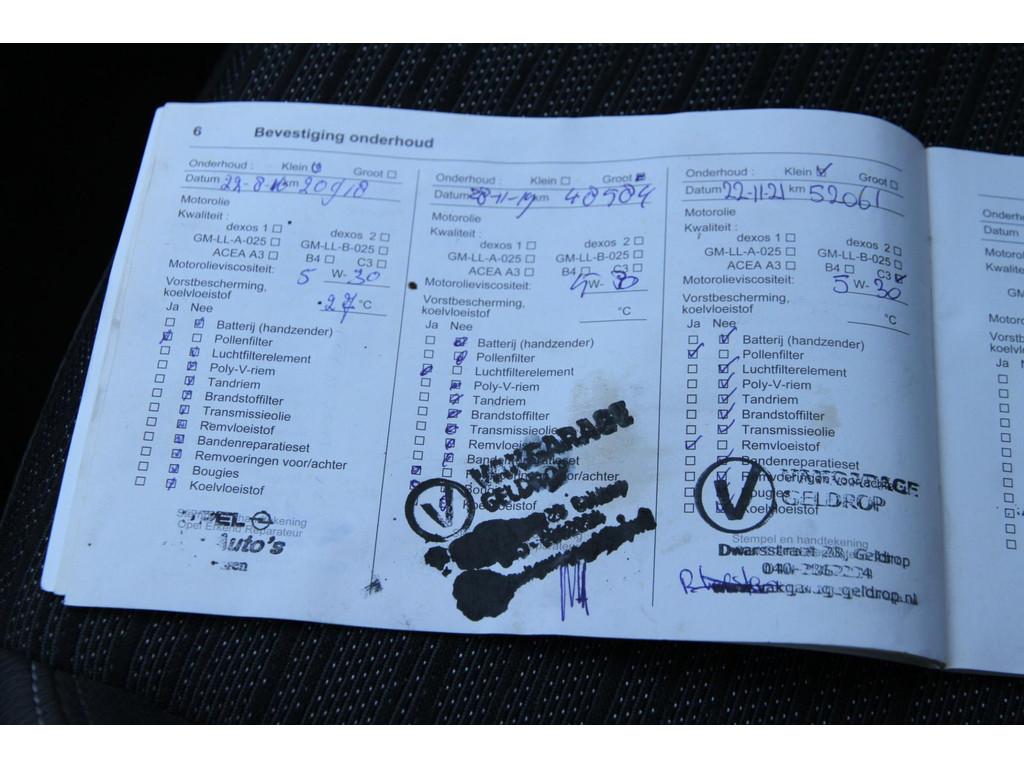 6 Bevestiging onderhoud
Onderhoud : Klein Groot
Datum 22-8- km
Motorolie
Kwaliteit :
dexos 1 dexos 2
GM-LL-A-025 GM-LL-B-025
ACEA A3 B4 C3
Motorolieviscositeit: 5 W- 30
Vorstbescherming,
koelvloeistof °C
Ja Nee
Batterij (handzender)
Pollenfilter
Luchtfilterelement
Poly-V-riem
Tandriem
Brandstoffilter
Transmissieolie
Remvloeistof
Bandenreparatieset
Remvoeringen voor/achter
Bougies
Koelvloeistof
Opel Erkend Reparateur
Auto's
Onderhoud : Klein Groot
Datum 28-11-19 km 48584
Motorolie
Kwaliteit :
dexos 1 dexos 2
GM-LL-A-025 GM-LL-B-025
ACEA A3 B4 C3
Motorolieviscositeit: W- 30
Vorstbescherming,
koelvloeistof °C
Ja Nee
Batterij (handzender)
Pollenfilter
Luchtfilterelement
Poly-V-riem
Tandriem
Brandstoffilter
Transmissieolie
Remvloeistof
V
VAKGARAGE
GELDROP
Onderhoud : Klein Groot
Datum 22-11-21 km 52061
Motorolie
Kwaliteit :
dexos 1 dexos 2
GM-LL-A-025 GM-LL-B-025
ACEA A3 B4 C3
Motorolieviscositeit: 5 W- 30
Vorstbescherming,
koelvloeistof °C
Ja Nee
Batterij (handzender)
Pollenfilter
Luchtfilterelement
Poly-V-riem
Tandriem
Brandstoffilter
Transmissieolie
Remvloeistof
Bandenreparatieset
Remvoeringen voor/achter
Bougies
Koelvloeistof
V
VAKGARAGE
GELDROP
Stempel en handtekening
Dwarsstraat 28, Geldrop
Datum
Ja